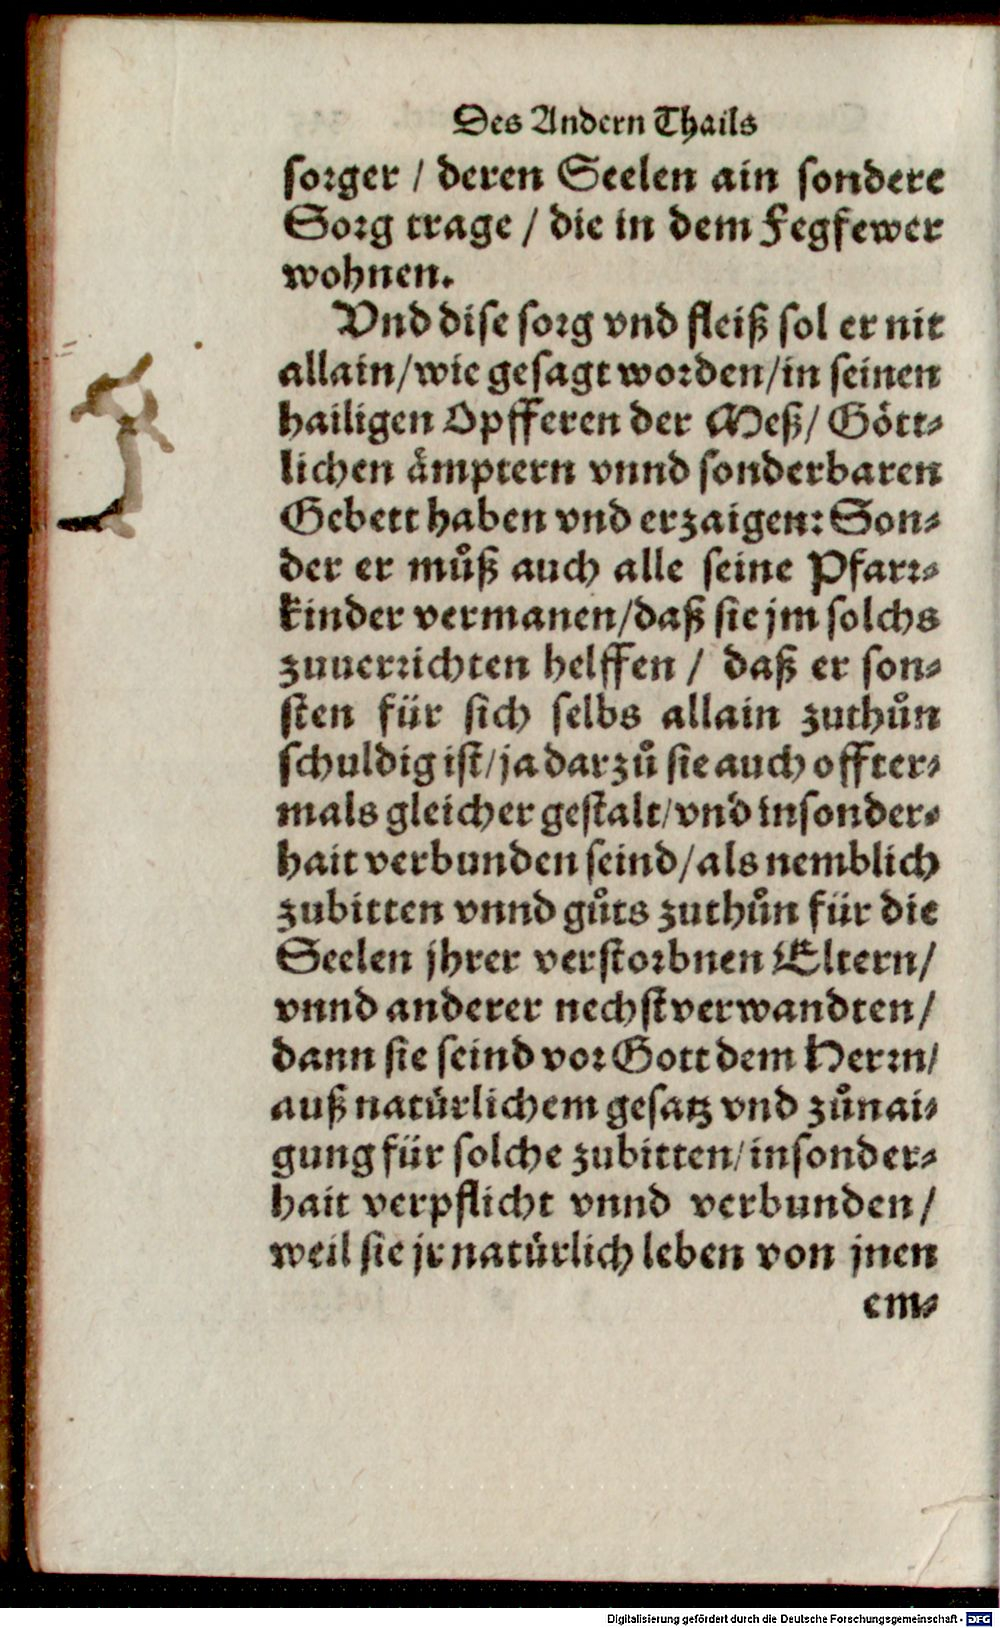 Des Andern Thails
sorger / deren Seelen ain sondere
Sorg trage / die in dem Fegfewer
wohnen.
Vnd dise sorg vnd fleiß sol er nit
allain/wie gesagt worden/in seinen
hailigen Opfferen der Meß/ Gött-
lichen ämptern vnnd sonderbaren
Gebett haben vnd erzaigen: Son-
der er muͦß auch alle seine Pfarr-
kinder vermanen/daß sie jm solchs
zuuerrichten helffen / daß er son-
sten für sich selbs allain zuthuͦn
schuldig ist/ja darzuͦ sie auch offter-
mals gleicher gestalt/vnd insonder-
hait verbunden seind/als nemblich
zubitten vnnd guͦts zuthuͦn für die
Seelen jhrer verstorbnen Eltern/
vnnd anderer nechstverwandten/
dann sie seind vor Gott dem Herrn/
auß natürlichem gesatz vnd zuͦnai-
gung für solche zubitten/insonder-
hait verpflicht vnnd verbunden/
weil sie jr natürlich leben von jnen
em-
Digitalisierung gefördert durch die Deutsche Forschungsgemeinschaft - DFG